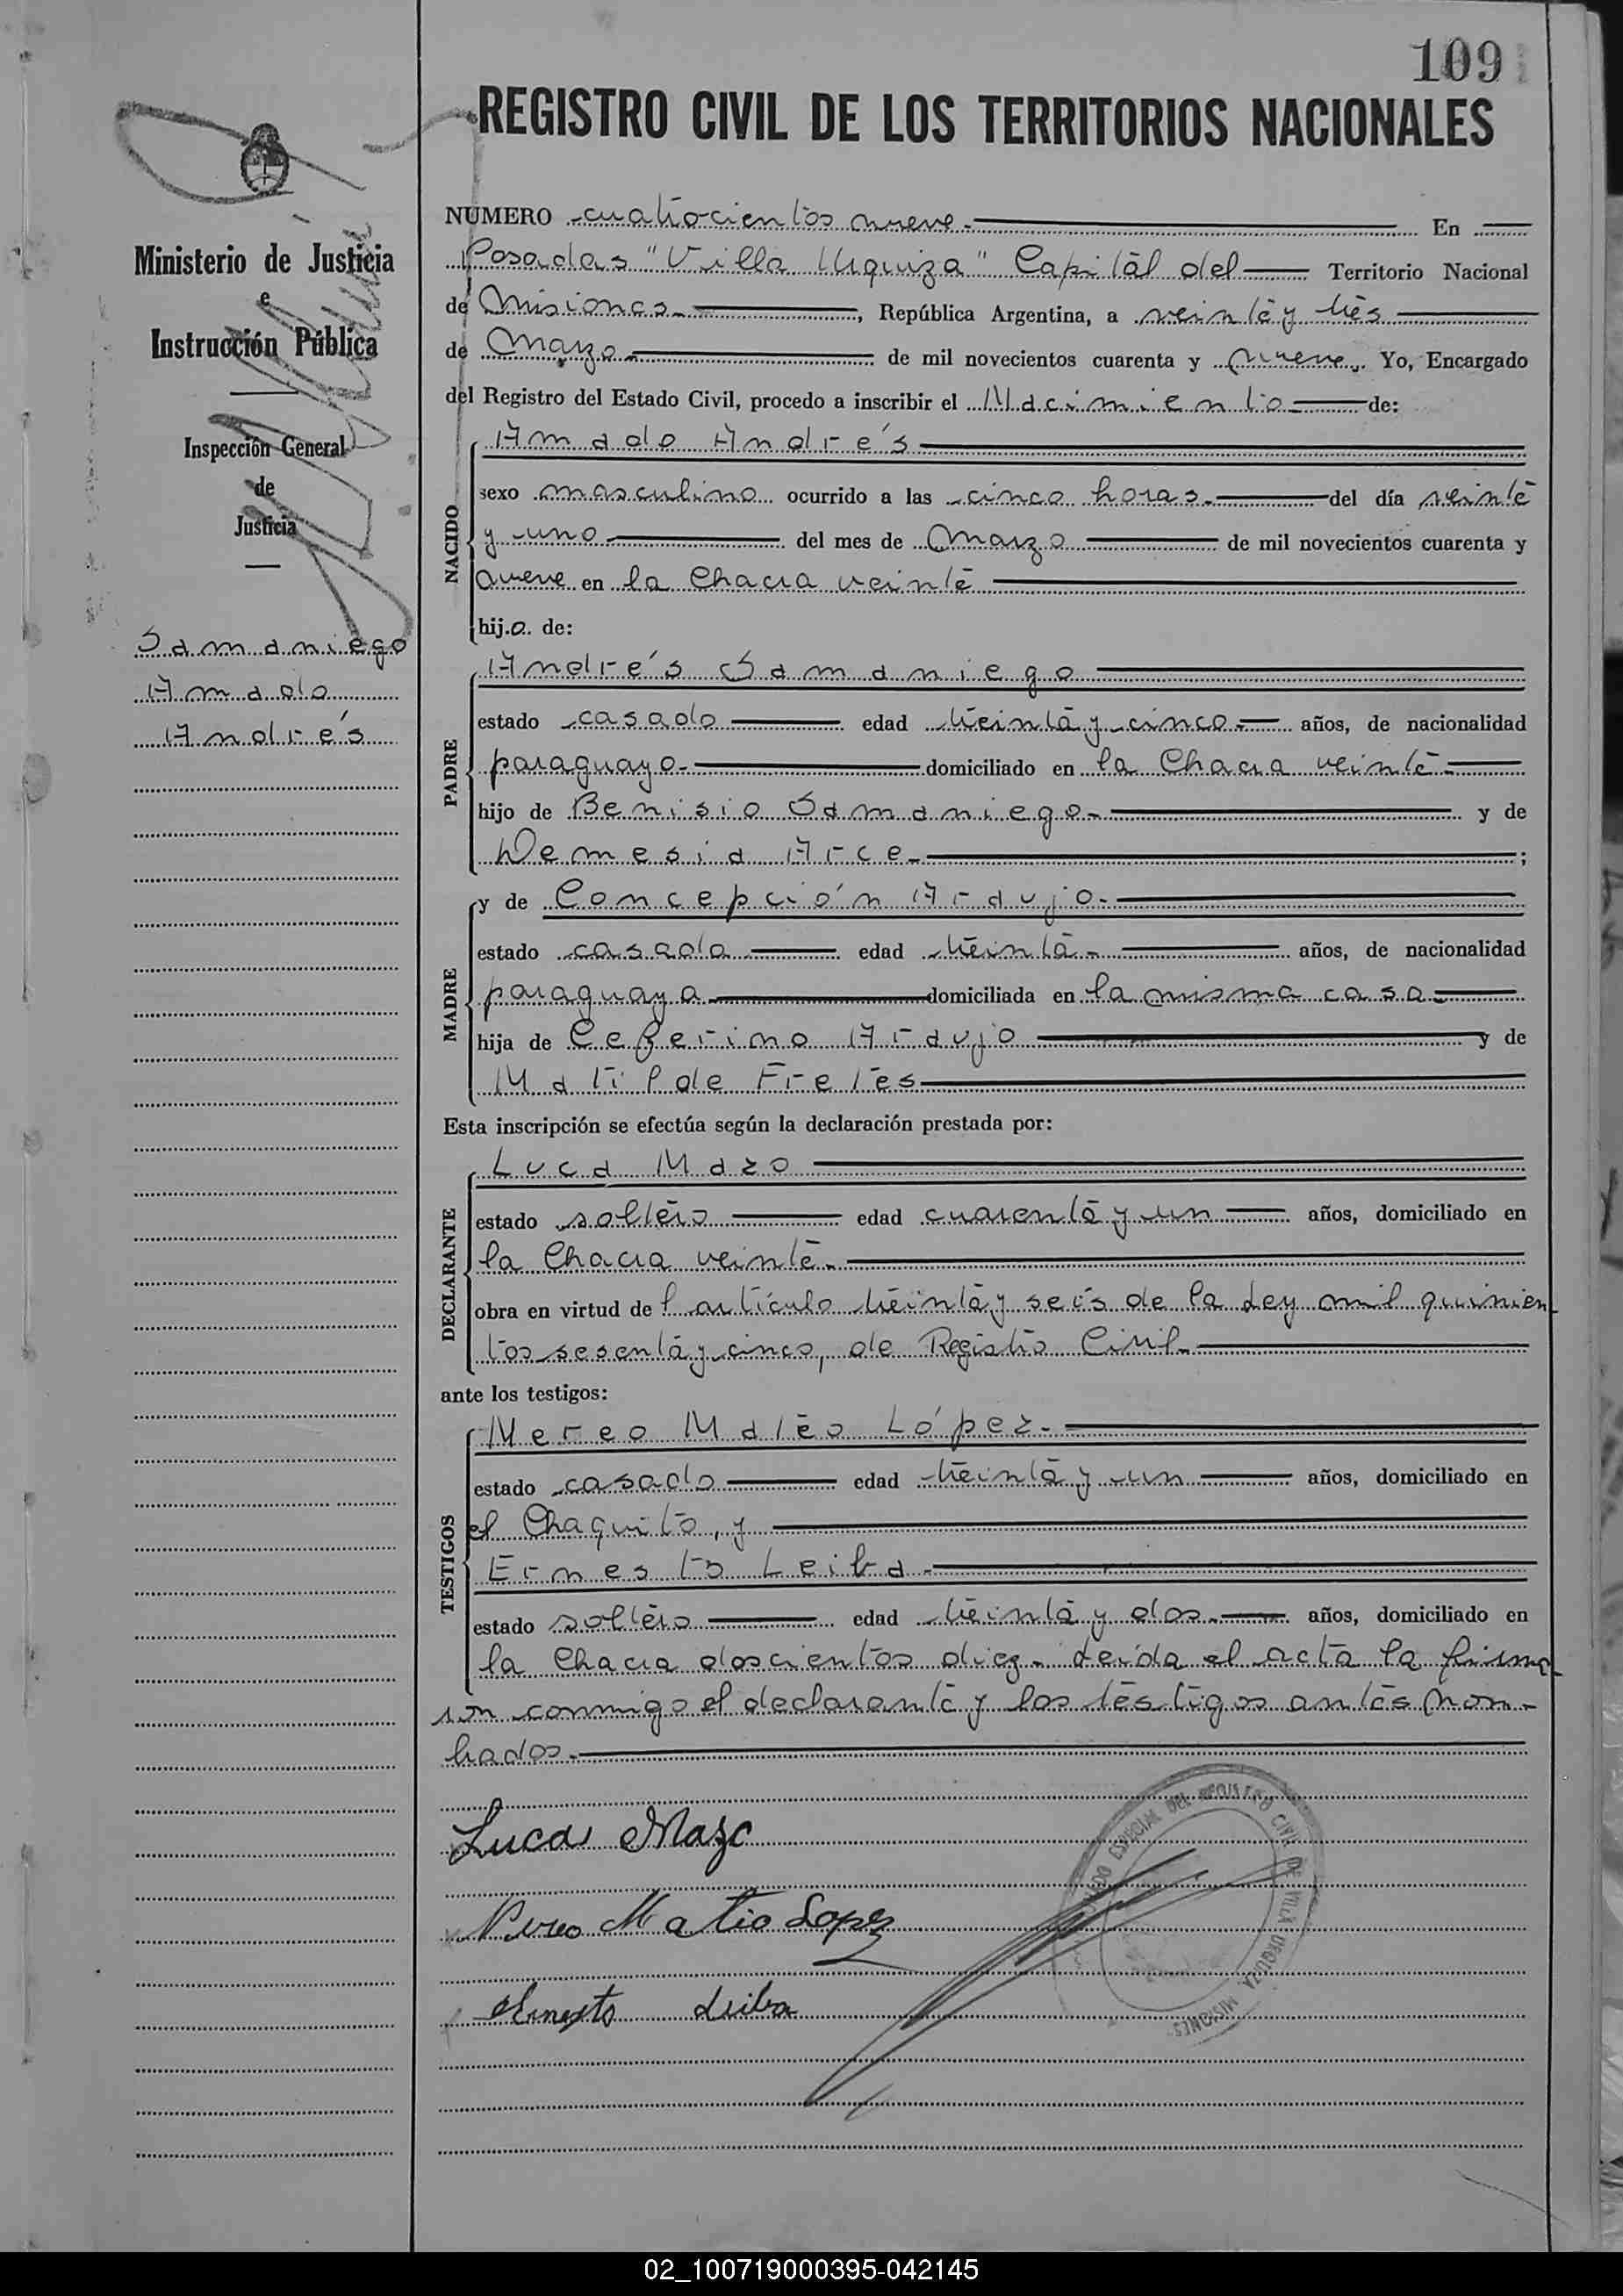 109
REGISTRO CIVIL DE LOS TERRITORIOS NACIONALES
Ministerio de Justicia
e
Instrucción Pública
Inspección General
de
Justicia
Samaniego
Amado
Andrés
NUMERO cuatrocientos nueve.- En
Posadas "Villa Urquiza" Capital del Territorio Nacional
de Misiones.-, República Argentina, a veinte y tres
de Marzo.- de mil novecientos cuarenta y nueve. Yo, Encargado
del Registro del Estado Civil, procedo a inscribir el Nacimiento de:
NACIDO
Amado Andrés
sexo masculino ocurrido a las cinco horas.- del día veinte
y uno del mes de Marzo de mil novecientos cuarenta y
nueve en la Chacra veinte
hijo de:
PADRE
Andrés Samaniego
estado casado edad treinta y cinco.- años, de nacionalidad
paraguayo.- domiciliado en la Chacra veinte.-
hijo de Benisio Samaniego.- y de
Nemesia Arce.- ;
MADRE
y de Concepción Araujo.-
estado casada edad treinta.- años, de nacionalidad
paraguaya domiciliada en la misma casa.-
hija de Ceferino Araujo y de
Matilde Fretes
Esta inscripción se efectúa según la declaración prestada por:
DECLARANTE
Luca Mazo
estado soltero edad cuarenta y un años, domiciliado en
la Chacra veinte.-
obra en virtud del artículo treinta y seis de la Ley mil quinien
tos sesenta y cinco, de Registro Civil.-
ante los testigos:
TESTIGOS
Nereo Mateo López.-
estado casado edad treinta y un años, domiciliado en
el Chaquito, y
Ernesto Leiba.-
estado soltero edad treinta y dos.- años, domiciliado en
la Chacra doscientos diez. Leída el acta la firma-
ron conmigo el declarante y los testigos antes nom-
brados.-
Lucas Mazo
Nereo Matio Lopez
Ernesto Leiba
ESPECIAL DEL REGISTRO CIVIL DE VILLA URQUIZA MISIONES
02_100719000395-042145